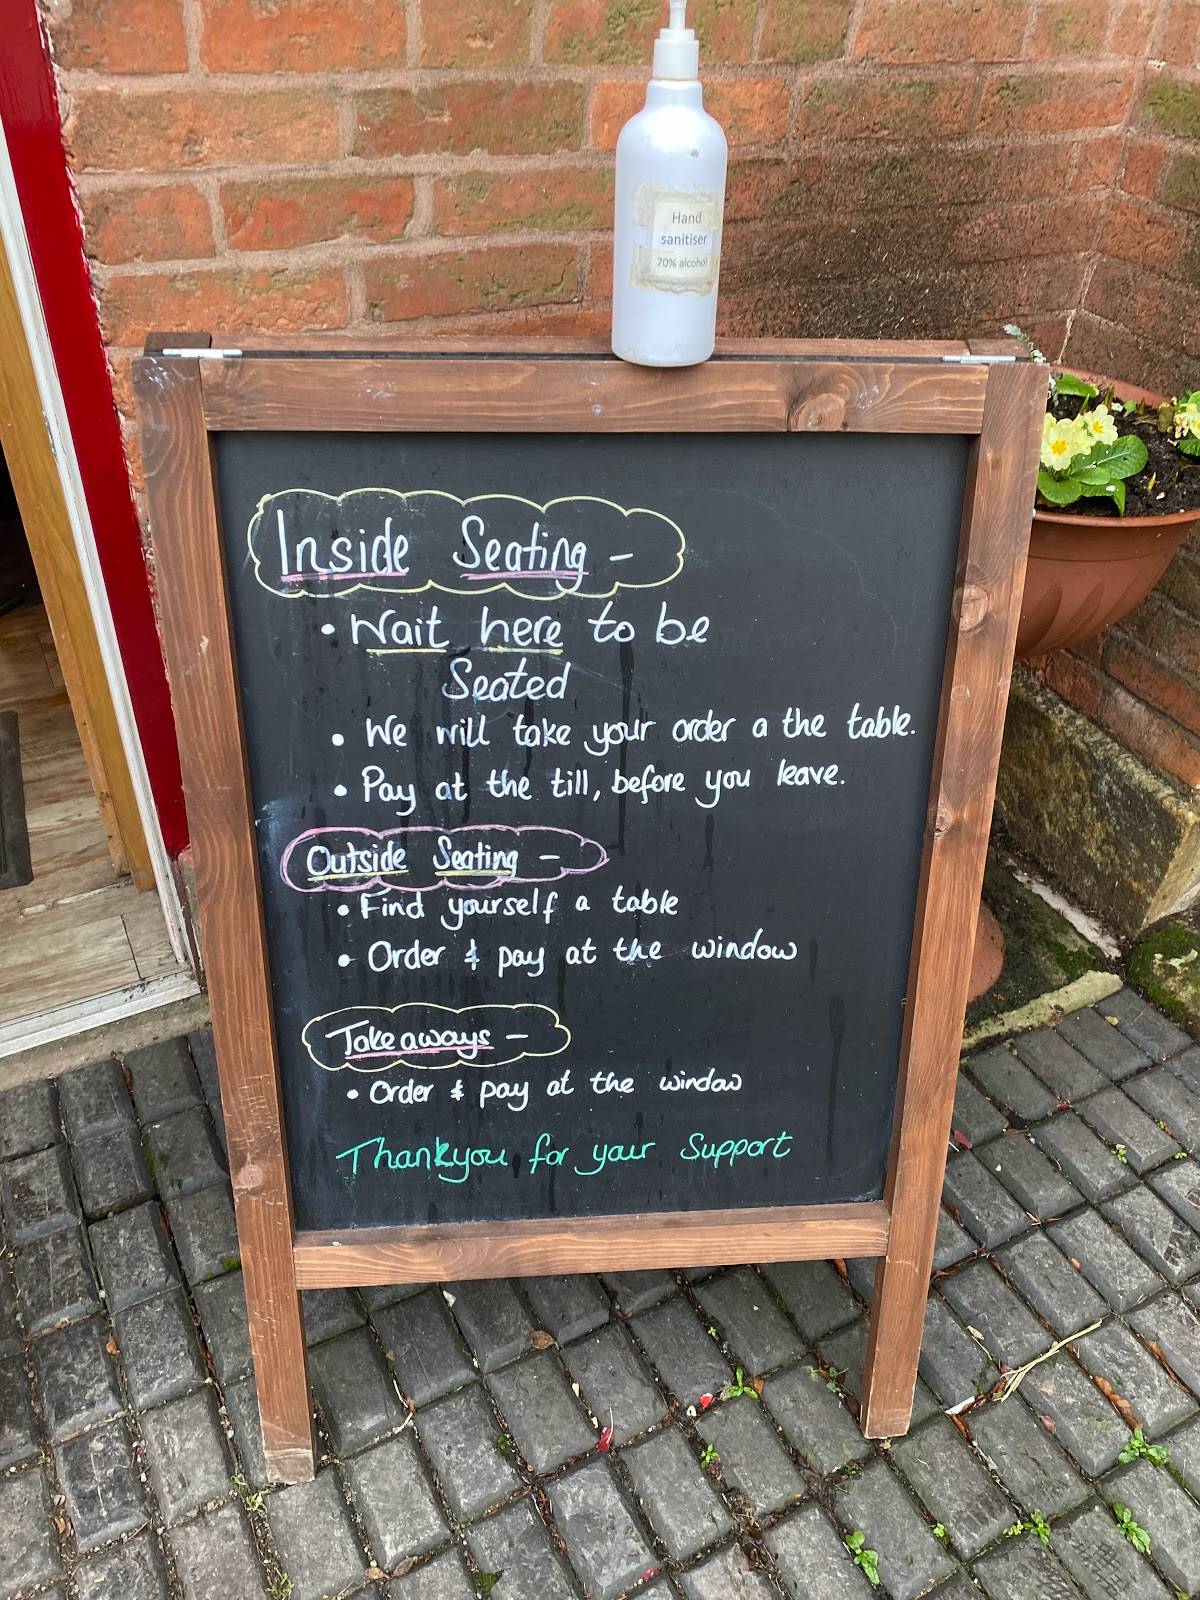 Hand
sanitiser
70% alcohol
Inside Seating -
• Wait here to be
Seated
• We will take your order a the table.
• Pay at the till, before you leave.
Outside Seating -
• Find yourself a table
• Order & pay at the window
Takeaways -
• Order & pay at the window
Thankyou for your Support